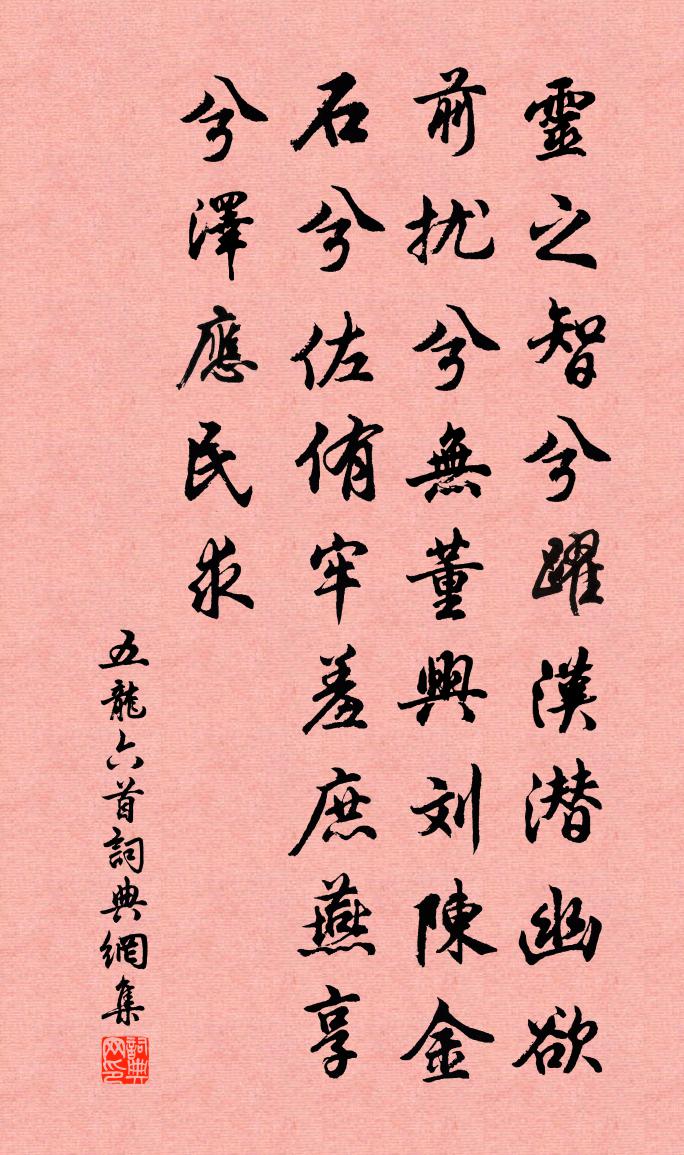 靈之智兮躍漢潜幽欲
前扰兮無董興刘陳金
石兮佐侑牢羞庶燕享
兮澤應民求
五龍六首詞典網集
詞典网印